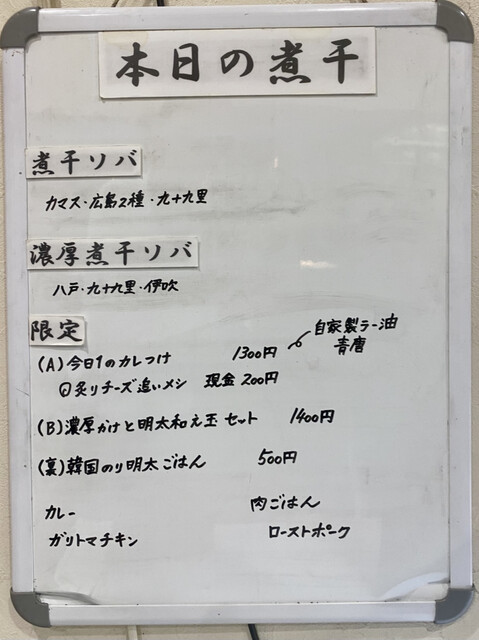 本日の煮干
煮干ソバ
カマス・広島2種・九十九里
濃厚煮干ソバ
八戸・九十九里・伊吹
限定
(A)今日1のカレつけ 1300円
自家製ラー油
青唐
炙りチーズ追いメシ 現金200円
(B)濃厚かけと明太和え玉セット 1400円
(裏)韓国のり明太ごはん 500円
カレー 肉ごはん
ガリトマチキン ローストポーク